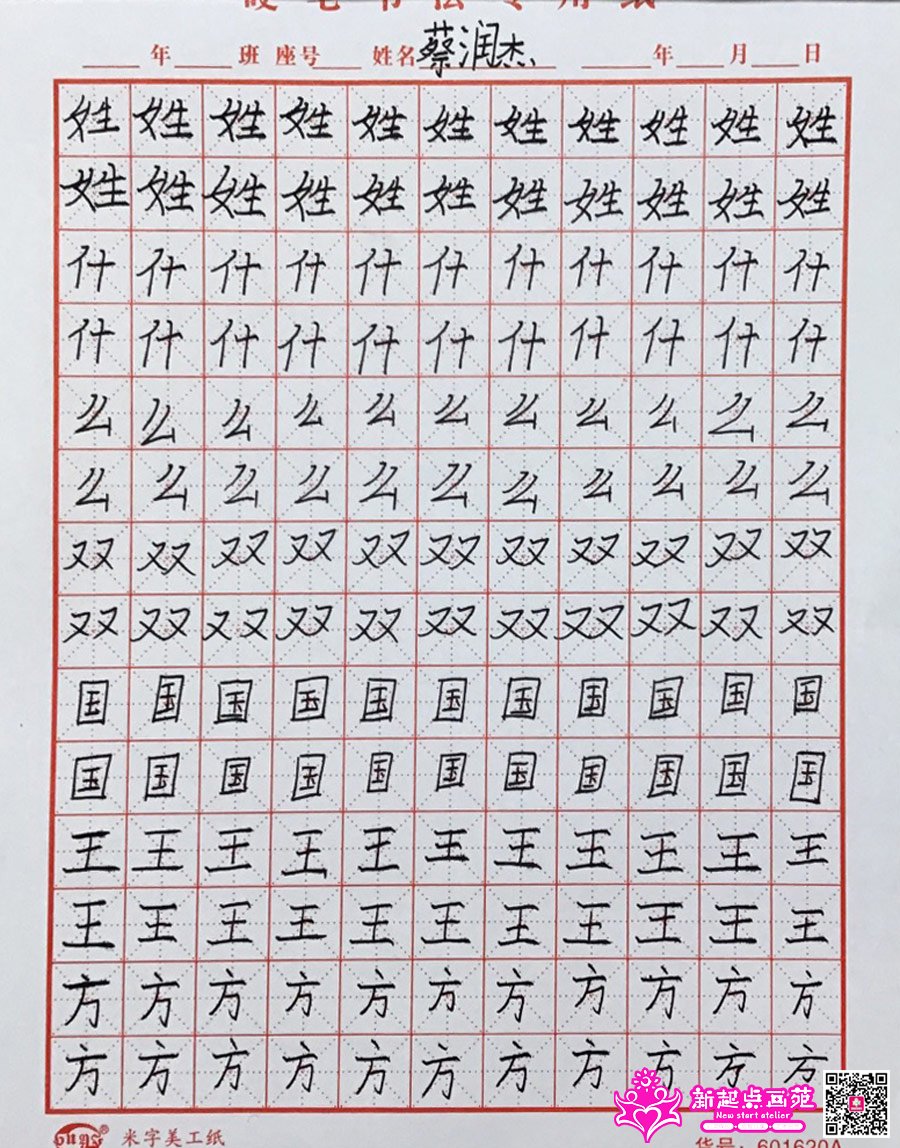 硬笔书法专用纸
年 班 座号 姓名 蔡润杰 年 月 日
姓姓姓姓姓姓姓姓姓姓姓
姓姓姓姓姓姓姓姓姓姓姓
什什什什什什什什什什什
什什什什什什什什什什什
么么么么么么么么么么么
么么么么么么么么么么么
双双双双双双双双双双双
双双双双双双双双双双双
国国国国国国国国国国国
国国国国国国国国国国国
王王王王王王王王王王王
王王王王王王王王王王王
方方方方方方方方方方方
方方方方方方方方方方方
米字美工纸
货号: 601620A
新起点画苑
New start atelier